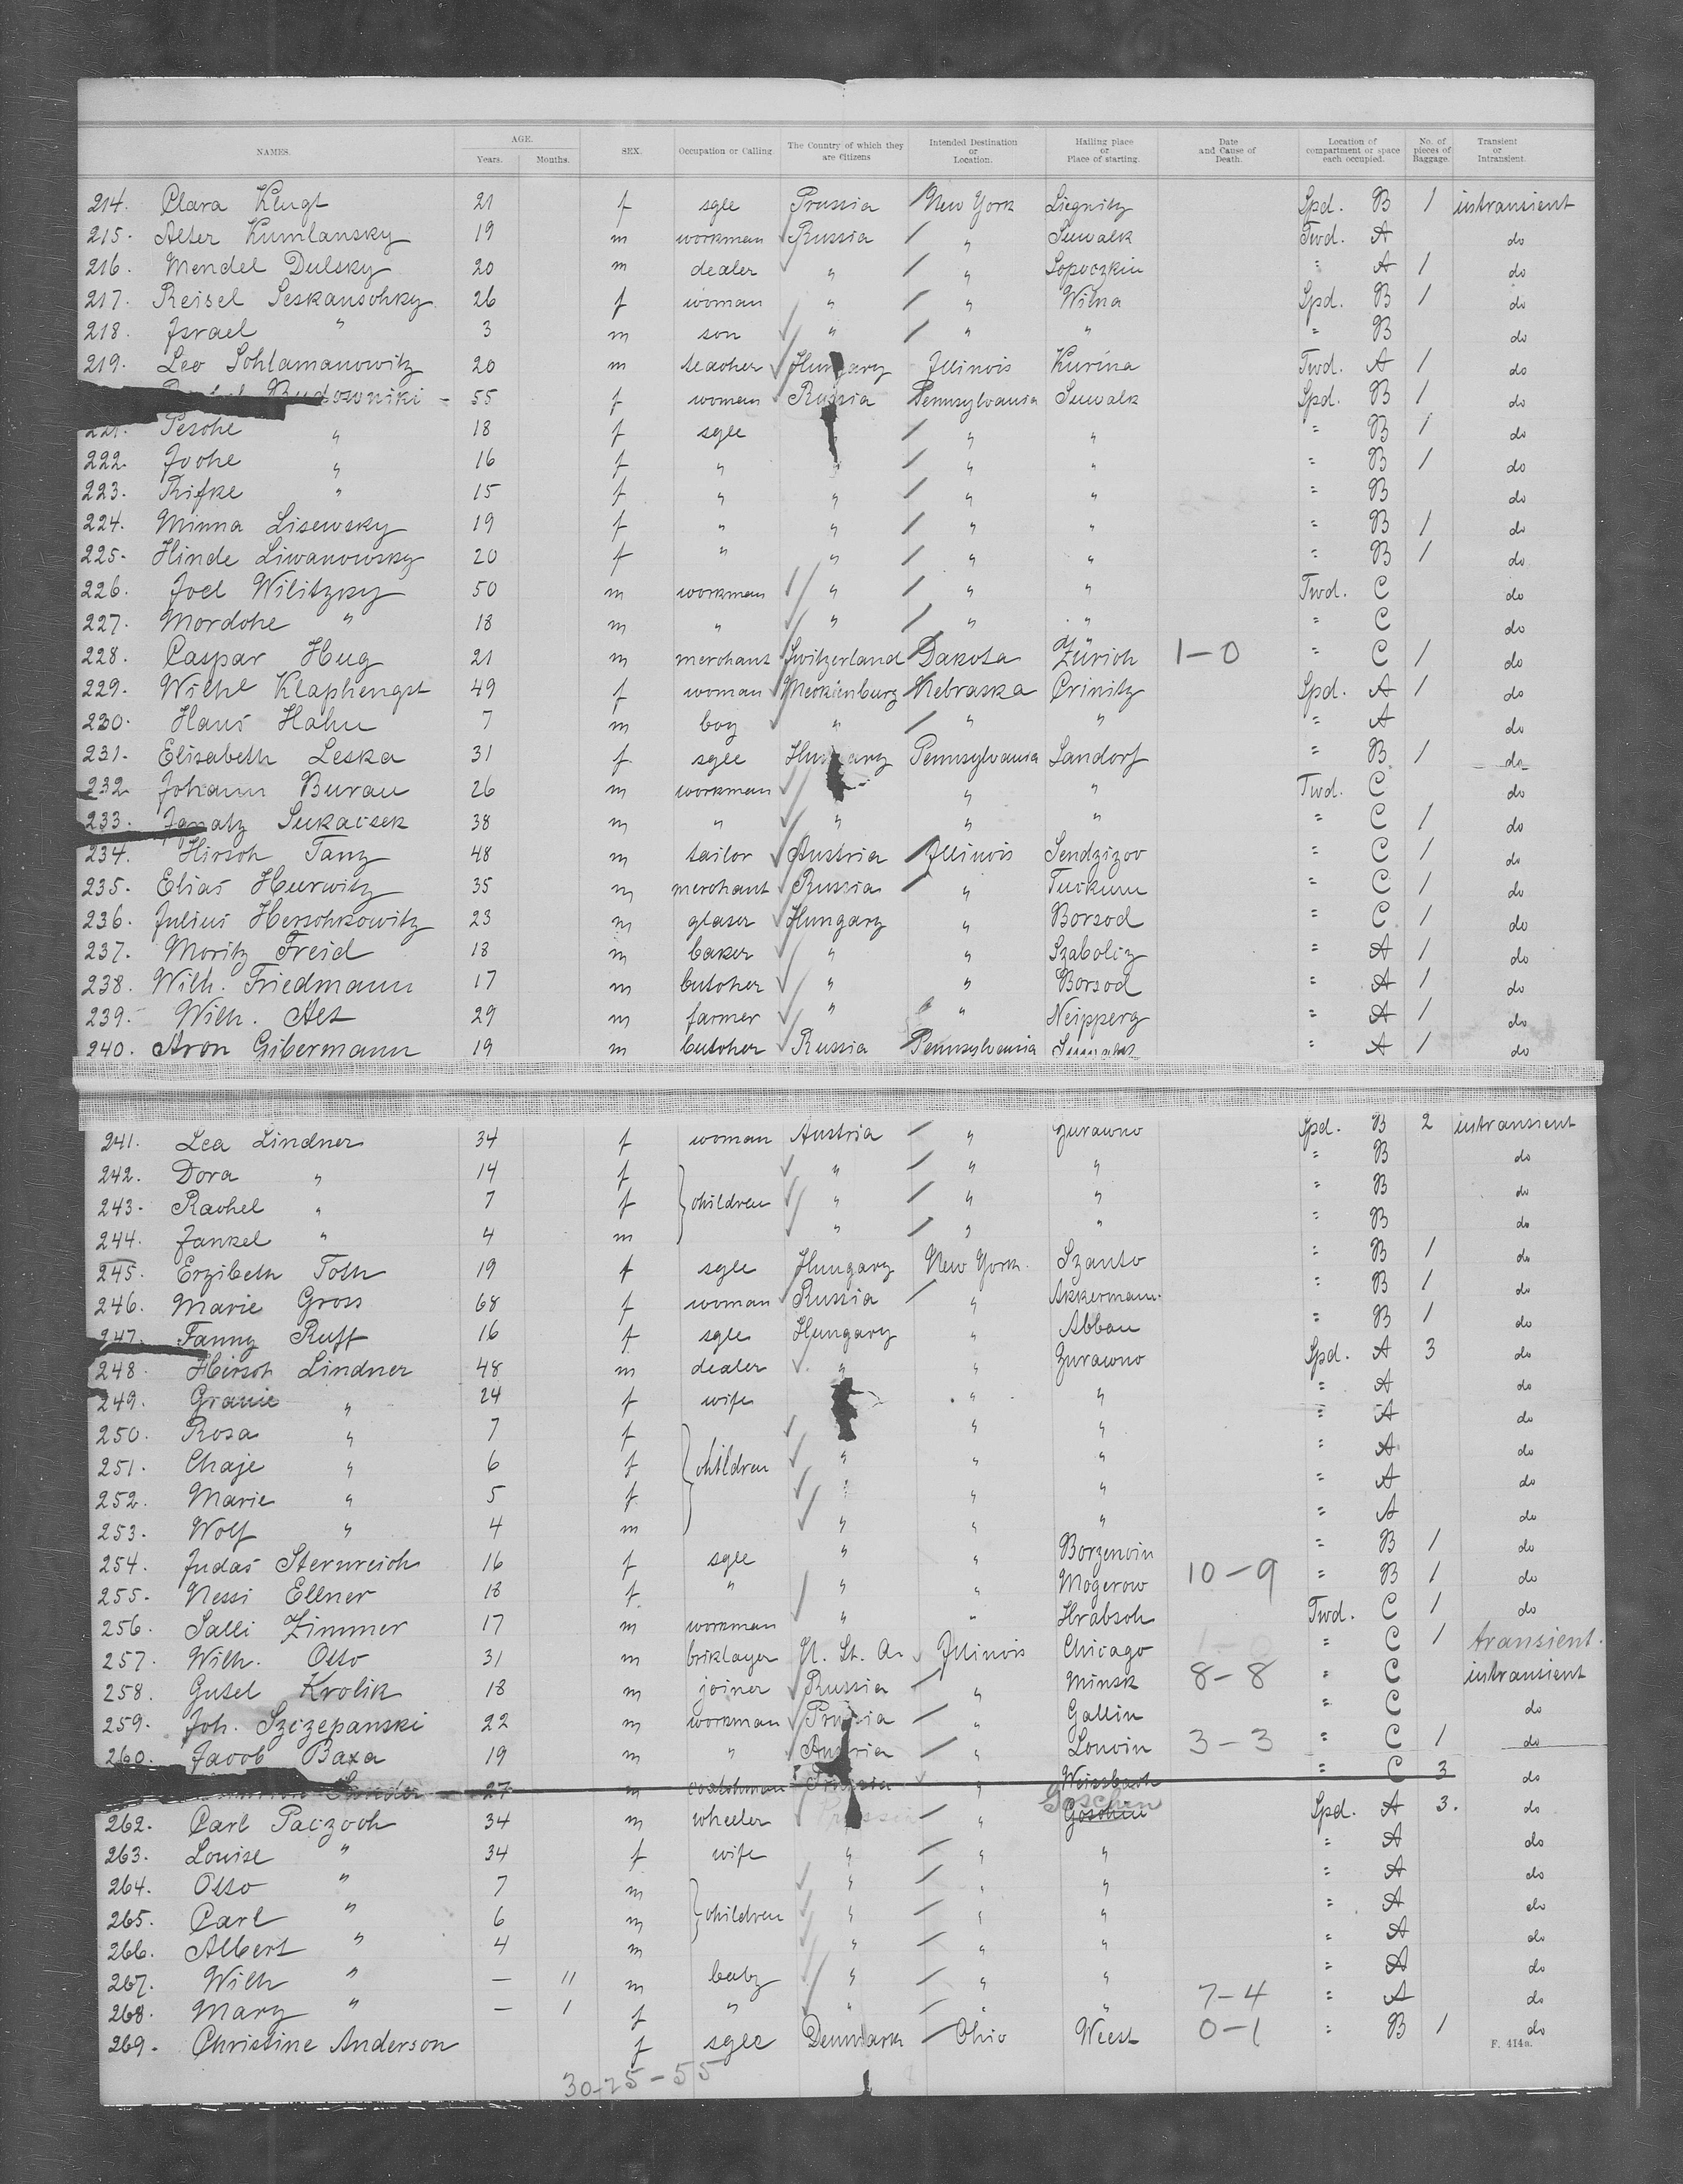 NAMES. AGE. Years. Months. SEX. Occupation or Calling. The Country of which they are Citizens Intended Destination or Location. Hailing place or Place of starting. Date and Cause of Death. Location of compartment or space each occupied. No. of pieces of Baggage. Transient or Intransient.
214. Clara Klugt 21 f sgle Prussia New York Liegnitz Spd. B 1 intransient
215. Alter Kumlansky 19 m workman Russia / " Suwalk Twd. A do
216. Mendel Dulsky 20 m dealer " / " Sopoczkin " A 1 do
217. Reisel Leskansohky 26 f woman " / " Wilna Spd. B 1 do
218. Israel " 3 m son " / " " " B do
219. Leo Schlamanowitz 20 m teacher Hungary Illinois Kurina Twd. A 1 do
Budowniki - 55 f woman Russia Pennsylvania Suwalk Spd. B 1 do
221. Pesche " 18 f sgle / " " " B 1 do
222. Joche " 16 f " " / " " " B 1 do
223. Rifke " 15 f " " / " " " B do
224. Minna Lisewsky 19 f " " / " " " B 1 do
225. Hinde Liwanowsky 20 f " " / " " " B 1 do
226. Joel Wilitzky 50 m workman " / " " Twd. C do
227. Mordche " 18 m " " / " " " C do
228. Caspar Hug 21 m merchant Switzerland Dakota Zürich 1-0 " C 1 do
229. Wilhe Klaphengst 49 f woman Mecklenburg Nebraska Crinitz Spd. A 1 do
230. Hans Hahn 7 m boy " / " " " A do
231. Elisabeth Leska 31 f sgle Hungary Pennsylvania Landorf " B 1 do
232. Johann Burau 26 m workman " " Twd. C do
233. Ignatz Sukacsek 38 m " " " " " C 1 do
234. Hirsch Tanz 48 m tailor Austria Illinois Sendzizov " C 1 do
235. Elias Hurwitz 35 m merchant Russia / " Tuckum " C 1 do
236. Julius Herschkowitz 23 m glaser Hungary " Borsod " C 1 do
237. Moritz Freid 18 m baker " " Szabolcz " A 1 do
238. Wilh. Friedmann 17 m butcher " " Borsod " A 1 do
239. Wilh. Alt 29 m farmer " " Neipperg " A 1 do
240. Aron Gibermann 19 m butcher Russia Pennsylvania Suwalk " A 1 do
241. Lea Lindner 34 f woman Austria / " Zurawno Spd. B 2 intransient
242. Dora " 14 f " / " " " B do
243. Rachel " 7 f children " / " " " B do
244. Jankel " 4 m " / " " " B do
245. Erzibeth Toth 19 f sgle Hungary New York. Szanto " B 1 do
246. Marie Gross 68 f woman Russia / " Akkermann. " B 1 do
247. Fanny Ruff 16 f sgle Hungary " Abbau " B 1 do
248. Hirsch Lindner 48 m dealer " " Zurawno Spd. A 3 do
249. Granie " 24 f wife " " " A do
250. Rosa " 7 f " " " A do
251. Chaje " 6 f children " " " " A do
252. Marie " 5 f " " " " A do
253. Wolf " 4 m " " " " A do
254. Judas Sternreich 16 f sgle " " Borzencin " B 1 do
255. Nessi Ellner 18 f " " " Mogerow 10-9 " B 1 do
256. Salli Zimmer 17 m workman " " Hrabsch Twd. C 1 do
257. Wilh. Otto 31 m briklayer U. St. A. Illinois Chicago " C 1 transient.
258. Gutel Krolik 18 m joiner Russia / " Minsk 8-8 " C intransient
259. Joh. Szczepanski 22 m workman Prussia / " Gallin " C do
260. Jacob Baxa 19 m " Austria / " Loucin 3-3 " C 1 do
27 m coatchman Prussia " Weissbach " C 3 do
Goschin
262. Carl Paczoch 34 m wheeler Prussia / " Goschin Spd. A 3. do
263. Louise " 34 f wife " " " " A do
264. Otto " 7 m " / " " " A do
265. Carl " 6 m children " / " " " A do
266. Albert " 4 m " " " " A do
267. Wilh " - 11 m baby " / " " " A do
268. Mary " - 1 f " " / " " 7-4 " A do
269. Christine Anderson f sgle Denmark Ohio Weest 0-1 " B 1 do
F. 414a.
30-25-55